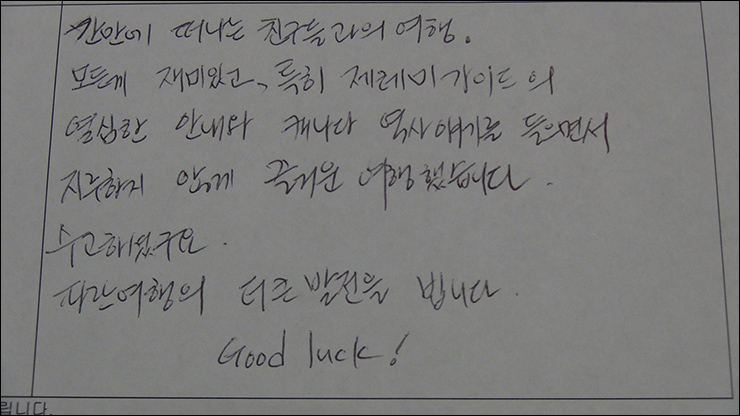 간만에 떠나는 친구들과의 여행.
모든게 재미있고, 특히 제레미가이드의
열심한 안내와 캐나다 역사얘기를 들으면서
지루하지 않게 즐거운 여행했습니다.
수고하셨구요.
파란여행의 더큰 발전을 빕니다.
Good luck!
립니다.